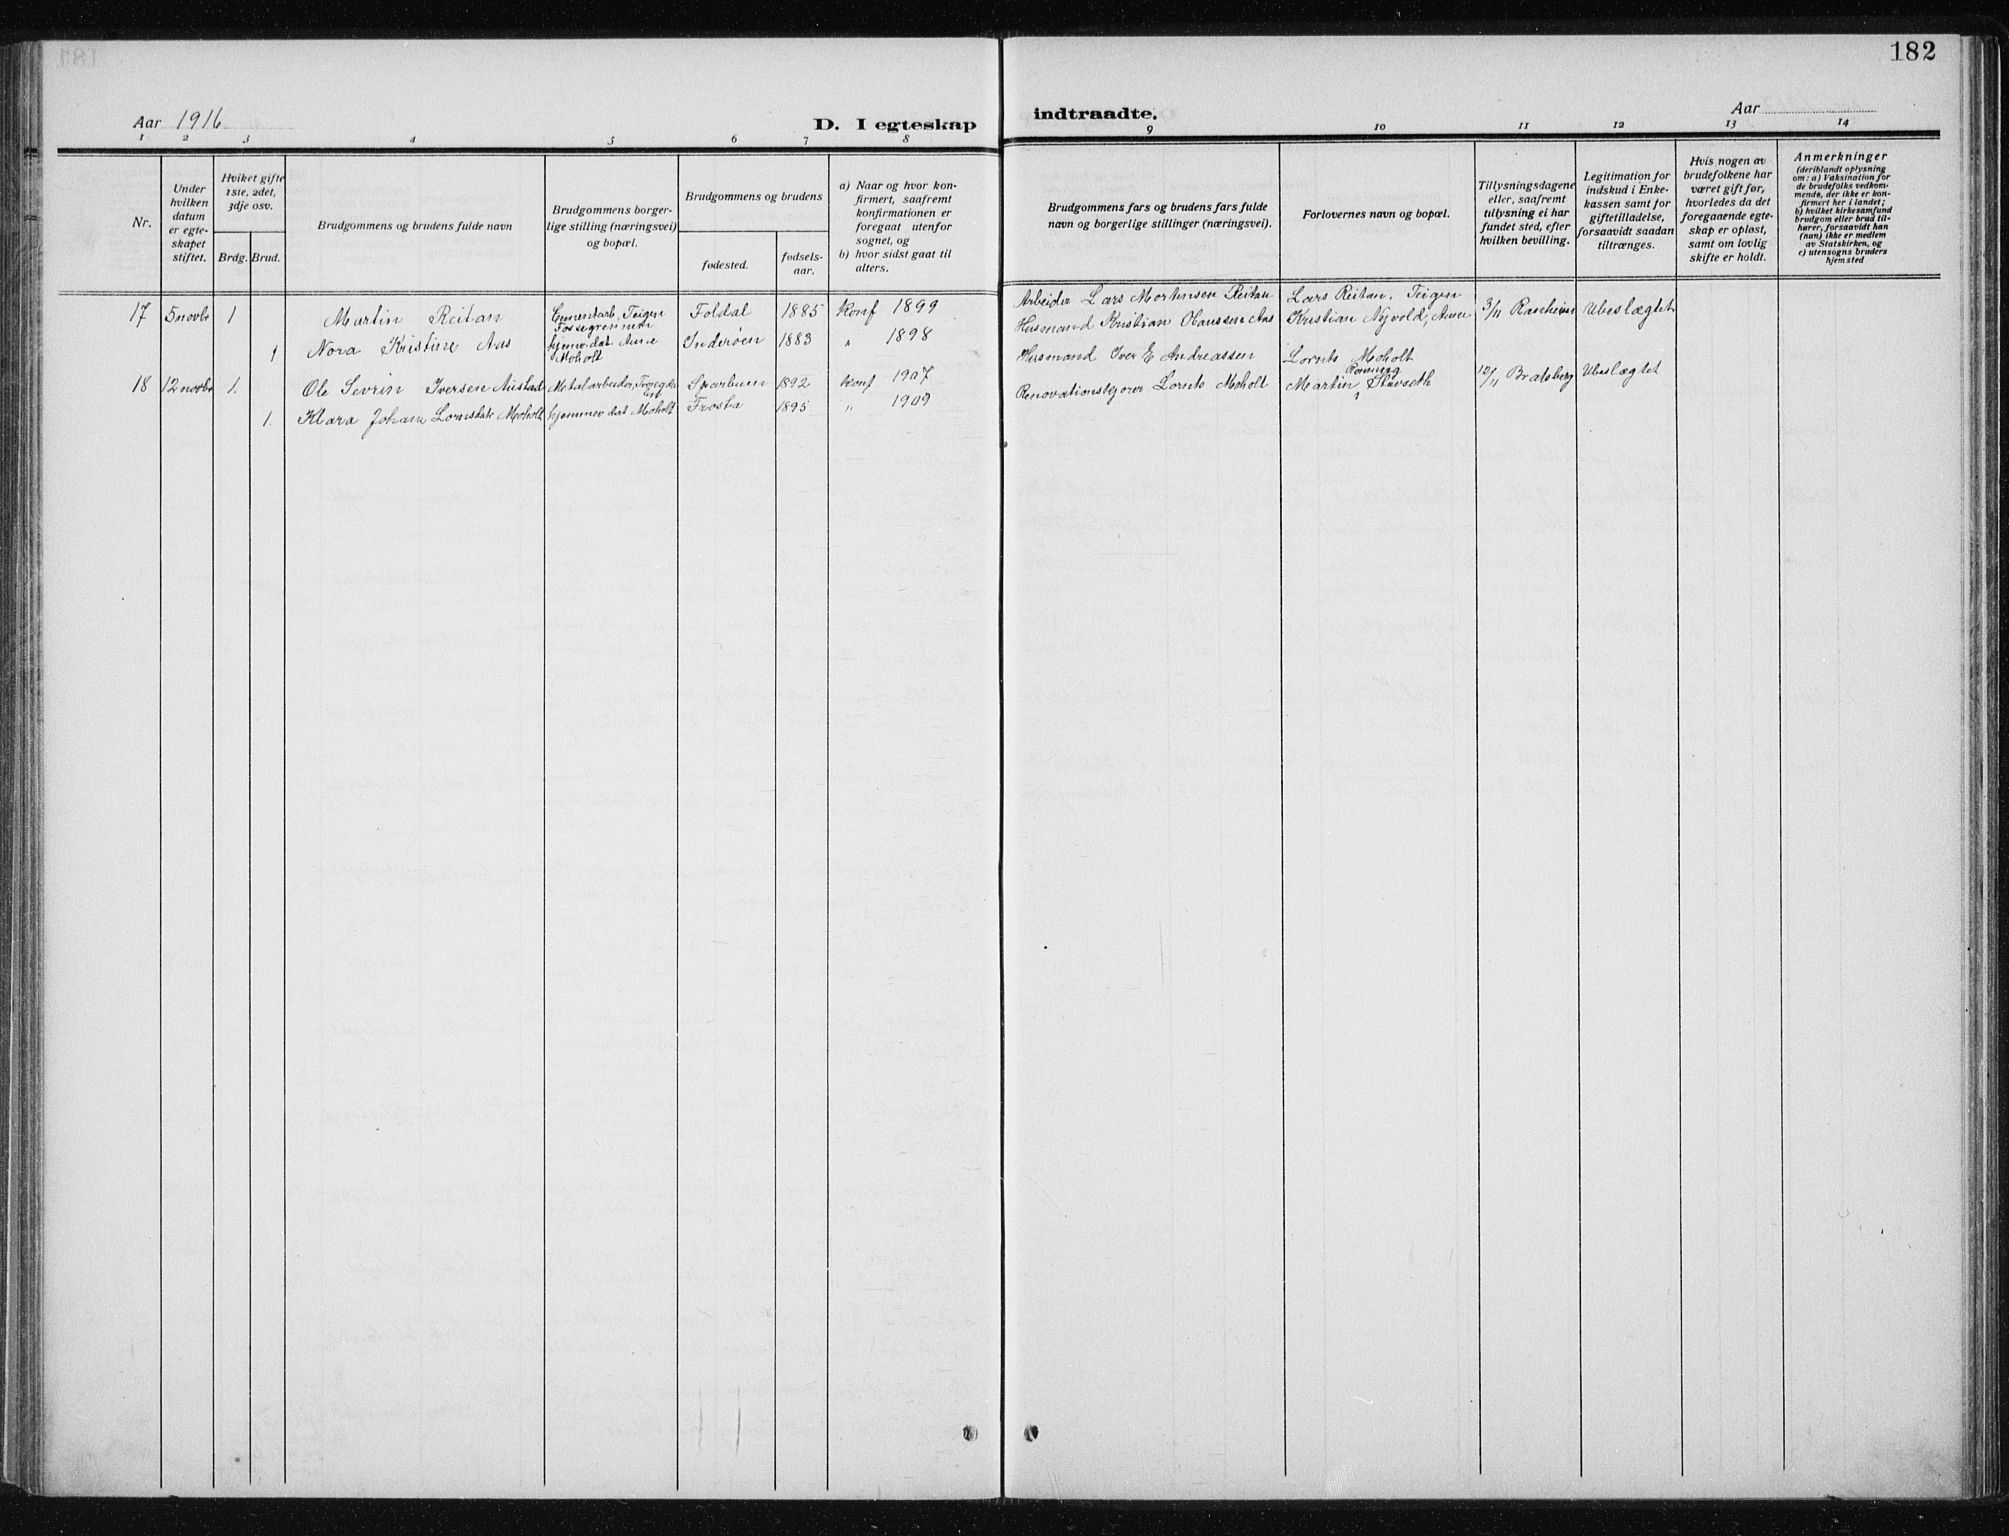 182
Aar 1916
D. I egteskap indtraadte.
Aar
1 2 3 4 5 6 7 8 9 10 11 12 13 14
Nr.
Under hvilken datum er egteskapet stiftet.
Hviket gifte 1ste, 2det, 3dje osv.
Brdg. Brud.
Brudgommens og brudens fulde navn
Brudgommens borgerlige stilling (næringsvei) og bopæl.
Brudgommens og brudens
fødested.
fødselsaar.
a) Naar og hvor konfirmert, saafremt konfirmationen er foregaat utenfor sognet, og
b) hvor sidst gaat til alters.
Brudgommens fars og brudens fars fulde navn og borgerlige stillinger (næringsvei).
Forlovernes navn og bopæl.
Tillysningsdagene eller, saafremt tillysning ei har fundet sted, efter hvilken bevilling.
Legitimation for indskud i Enkekassen samt for giftetilladelse, forsaavidt saadan tiltrænges.
Hvis nogen av brudefolkene har været gift før, hvorledes da det foregaaende egteskap er opløst, samt om lovlig skifte er holdt.
Anmerkninger
(deriblandt oplysning om: a) Vaksination for de brudefolks vedkommende, der ikke er konfirmert her i landet; b) hvilket kirkesamfund brudgom eller brud tilhører, forsaavidt han (hun) ikke er medlem av Statskirken, og c) utensogns bruders hjemsted
17 5 novbr 1 Martin Reitan Teigen Foldal 1885 Konf 1899 Arbeider Lars Mortensen Reitan Lars Reitan, Teigen 3/11 Ranheim Ubeslægtet
1 Nora Kristine Aas hjemv. dat. Moholt Inderøen 1883 " 1898 Husmand Kristian Olaussen Aas Kristian Nyvold,
18 12 novbr 1. Ole Sevrin Iversen Austad Metalarbeider, Skarbuen 1892 Konf 1907 Husmand Iver E Andreassen Lornts Moholt 12/11 Bratsberg Ubeslægtet
1. Klara Johan Lorntsdtr Moholt hjemmev dat Moholt Frosta 1895 " 1909 Renovationskjører Lornts Moholt Martin Rønning